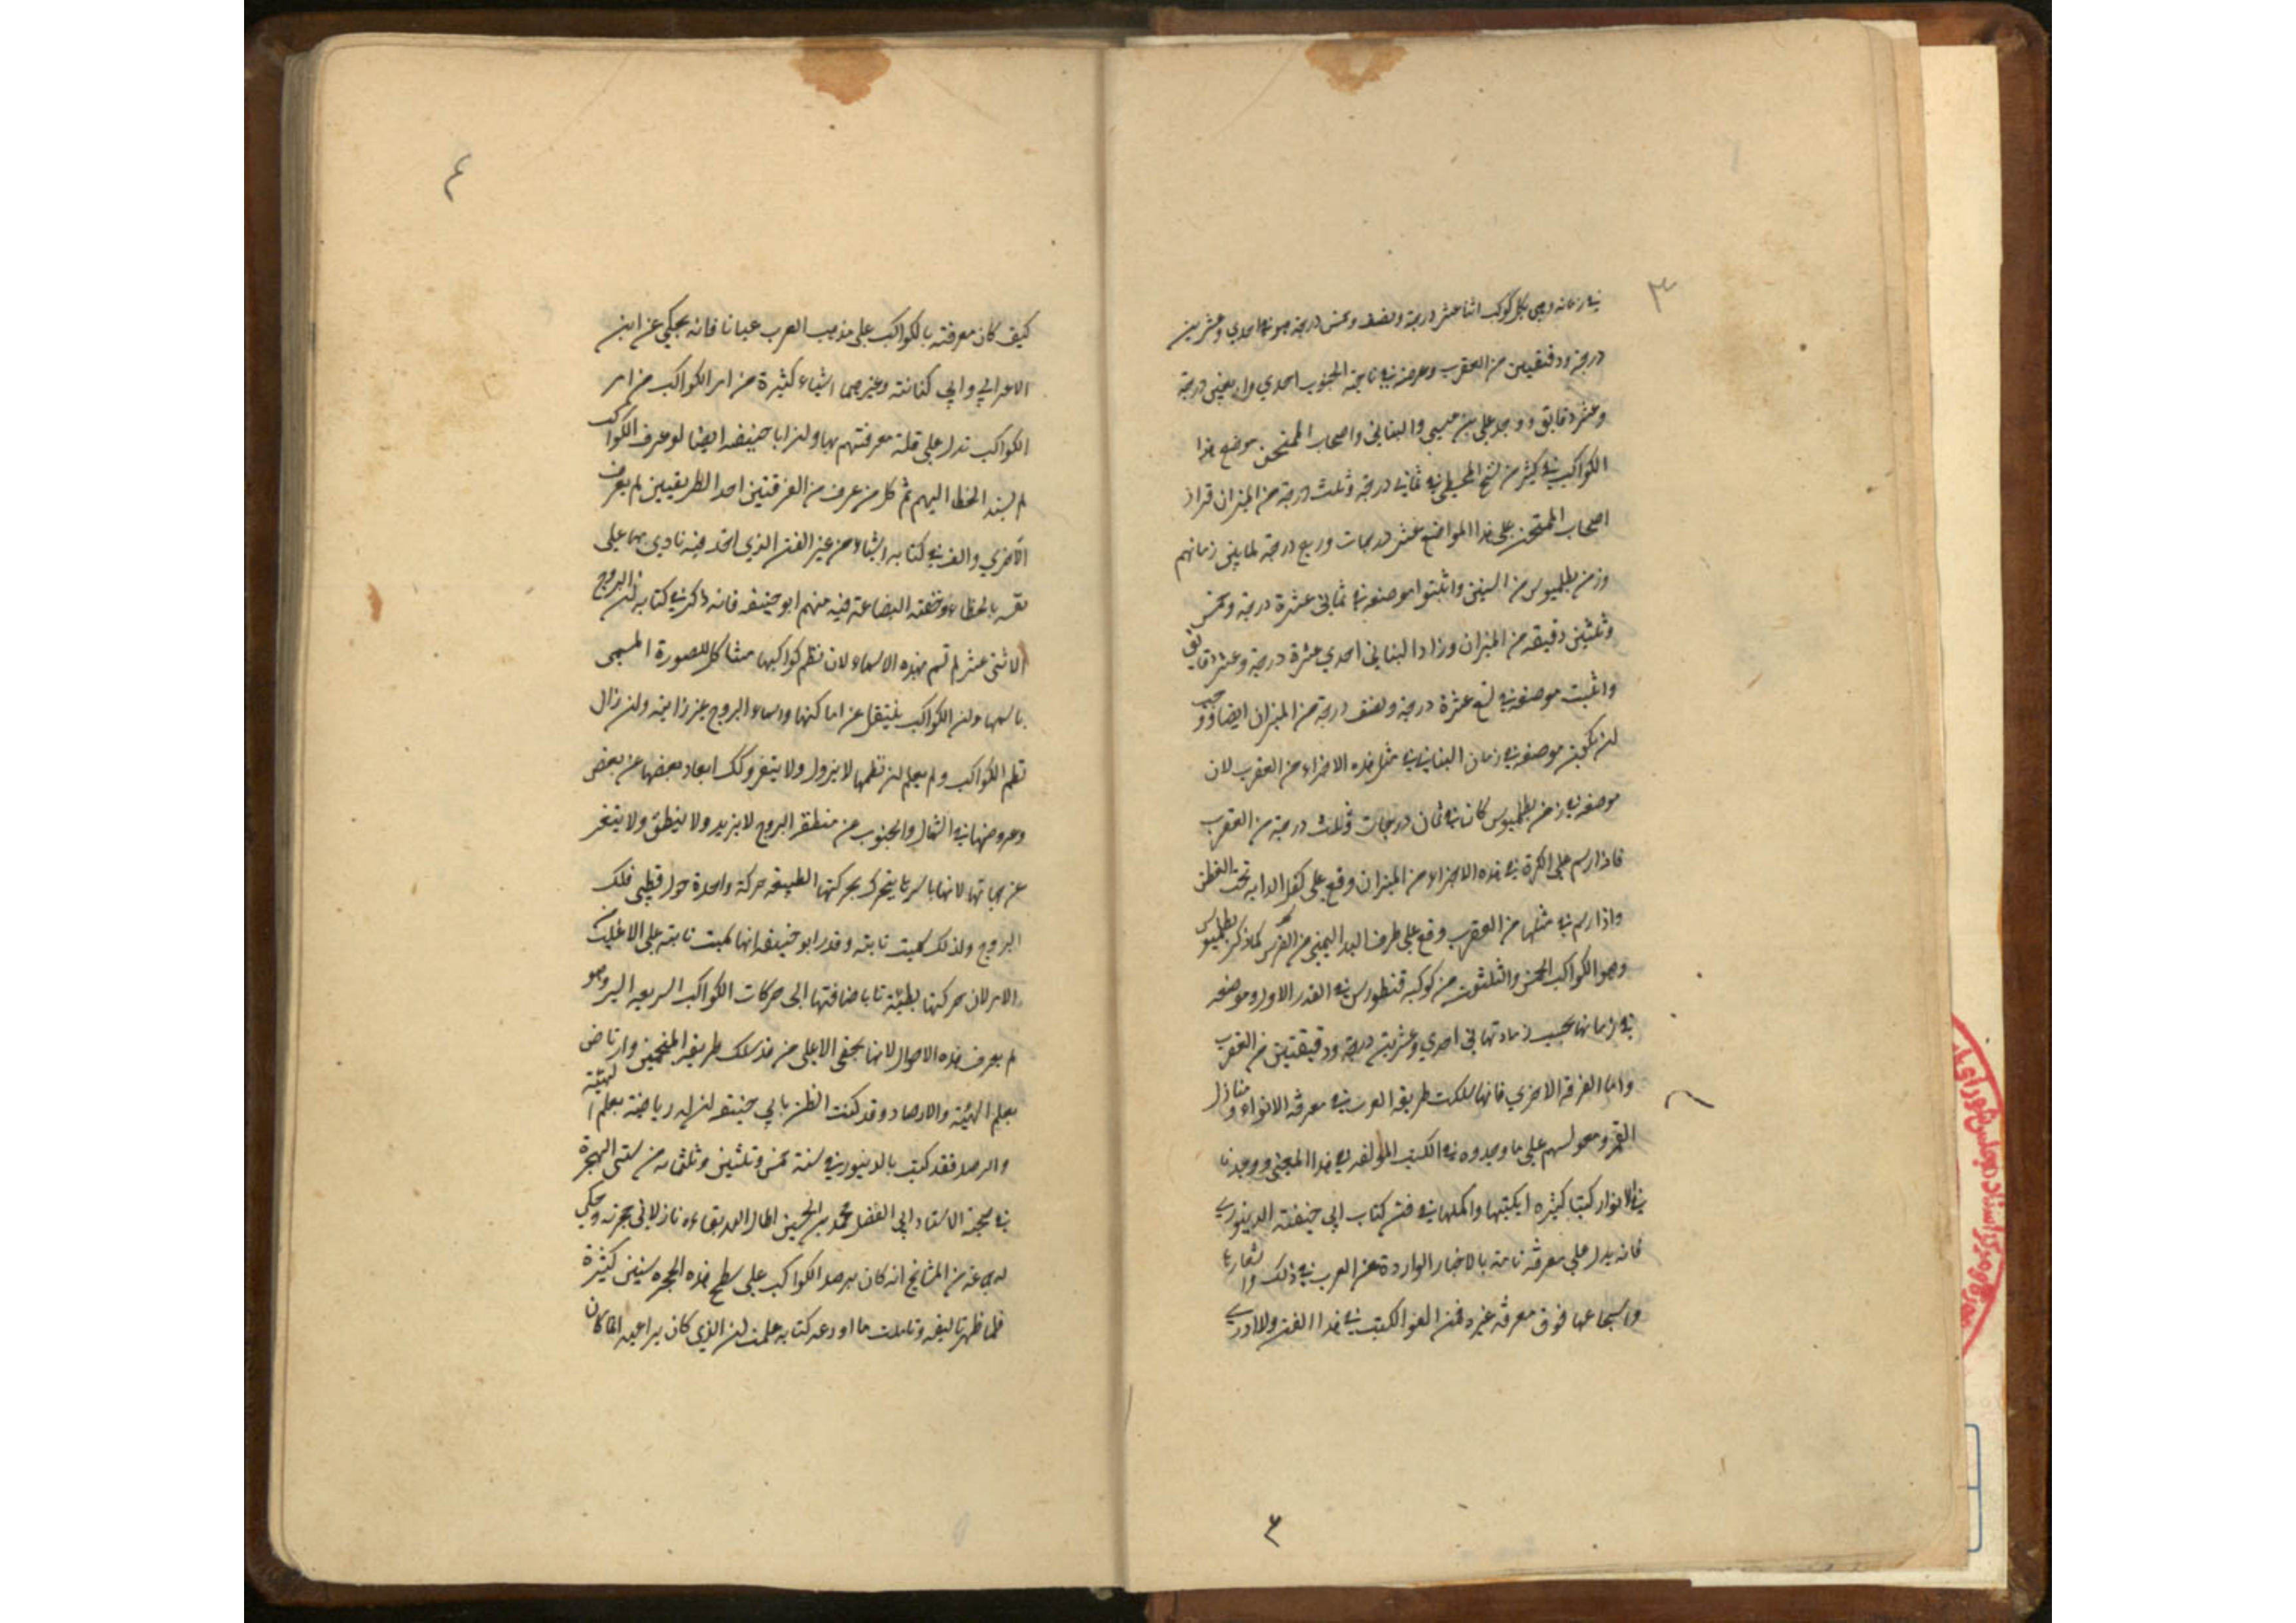 ٣
في زمانه وهي لكل كوكب اثنا عشر درجة ونصف وخمس درجة موضعه احدي وعشرين
درجة ودقيقتين من العقرب وعرضه في ناحية الجنوب احدي واربعين درجة
وعشر دقايق ووجد علي بن عيسي والبتاني واصحاب الممتحن موضع هذا
الكواكب في كثير من نسخ المجسطي في ثماني درجة وثلث درجة من الميزان فزاد
اصحاب الممتحن على هذا المواضع عشر درجات وربع درجة لما بين زمانهم
وزمن بطلميوس من السنين واثبتوا موضعه في ثماني عشرة درجة وخمس
وثلثين دقيقه من الميزان وزاد البتاني احدي عشرة درجة وعشر دقايق
واثبت موضعه في تسع عشرة درجة ونصف درجة من الميزان ايضا ووجب
لن يكون موضعه في زمان البتاني في مثل هذه الاجزاء من العقرب لان
موضعه في زمن بطلميوس كان في ثمان درجات وثلث درجة من العقرب
فاذا رسم على الكرة في هذه الاجزاء من الميزان وقع على كفل الدابه تحت القطن
واذا رسم في مثلها من العقرب وقع على طرف اليد اليمني من الفرس كما ذكره بطلميوس
وهو الكواكب الخمس والثلثون من كوكبه قنطورس في القدر الاول وموضعه
في زماننا بحسب زيادتها في احدي وعشرين درجة ودقيقتين من العقرب
واما الفرقة الاخري فانها سلكت طريقه العرب في معرفة الانواء ومنازل
القمر ومعولهم على ما وجدوه في الكتب المؤلفه في هذا المعني ووجدنا
في الانوار كتبا كثيره ايكتبها واكملها في فنه كتاب ابي حنيفة الدينوري
فانه يدل على معرفة تامة بالاخبار الواردة عن العرب في ذلك واشعارها
واسجاعها فوق معرفة غيره ممن الفوا الكتب في هذا الفن ولا ادري
٤
٤
كيف كان معرفته بالكواكب على مذهب العرب عيانا فانه يحكي عن ابن
الاعرابي وابي كنانته وغيرهما اشياء كثيرة من امر الكواكب من امر
الكواكب تدل على قلة معرفتهم بها ولن ابا حنيفه ايضا لو عرف الكواكب
لم يسند الخطا اليهم ثم كل من عرف من الفرقتين احد الطريقين لم يعرف
الاخري والف في كتابه اشياء من غير الفن الذي اخذ فيه نادي بها على
نفسه بالخطاء وخفته البضاعة فيه منهم ابو حنيفه فانه ذكر في كتابه لن البروج
الاثني عشر لم تسم بهذه الاسماء لان نظم كواكبها مشاكل للصورة المسمي
باسمها ولن الكواكب ينتقل عن اماكنها واسماء البروج غير زايله ولن زال
نظم الكواكب ولم يعلم لن نظمها لا يزول ولا يتغير ولك ابعاد بعضها عن بعض
وعروضها في الشمال والجنوب من منطقه البروج لا يزيد ولا ينطق ولا يتغير
عن جهاتها لانها باسرها يتحرك بحركتها الطبيعه حركة واحدة حول قطبي فلك
البروج ولذلك سميت ثابته وقدر ابو حنيفه انها سميت ثابته على الاغلب
الامر لان حركتها بطيئة تابا ضافتها الى حركات الكواكب السريعه السير وهو
لم يعرف هذه الاحوال لانها يخفي الا على من قد سلك طريقه المنجمين وارتاض
بعلم الهيئة والارصاد وقد كنت اظن بابي حنيفه لن له رياضة بعلم الهيئة
والرصد فقد كنت بالدينور في سنة خمس وثلثين وثلثماىه من سني الهجرة
في صحبة الاستاد ابي الفضل محمد بن الحسين اطال الله بقاءه نازلا في حجرته وحكي
لي عنه من المشايخ انه كان يرصد الكواكب على سطح هذه الحجره سنين كثيرة
فلما ظهر تاليفه وتاملت ما اودعه كتابه علمت لن الذي كان يراعيه انما كان